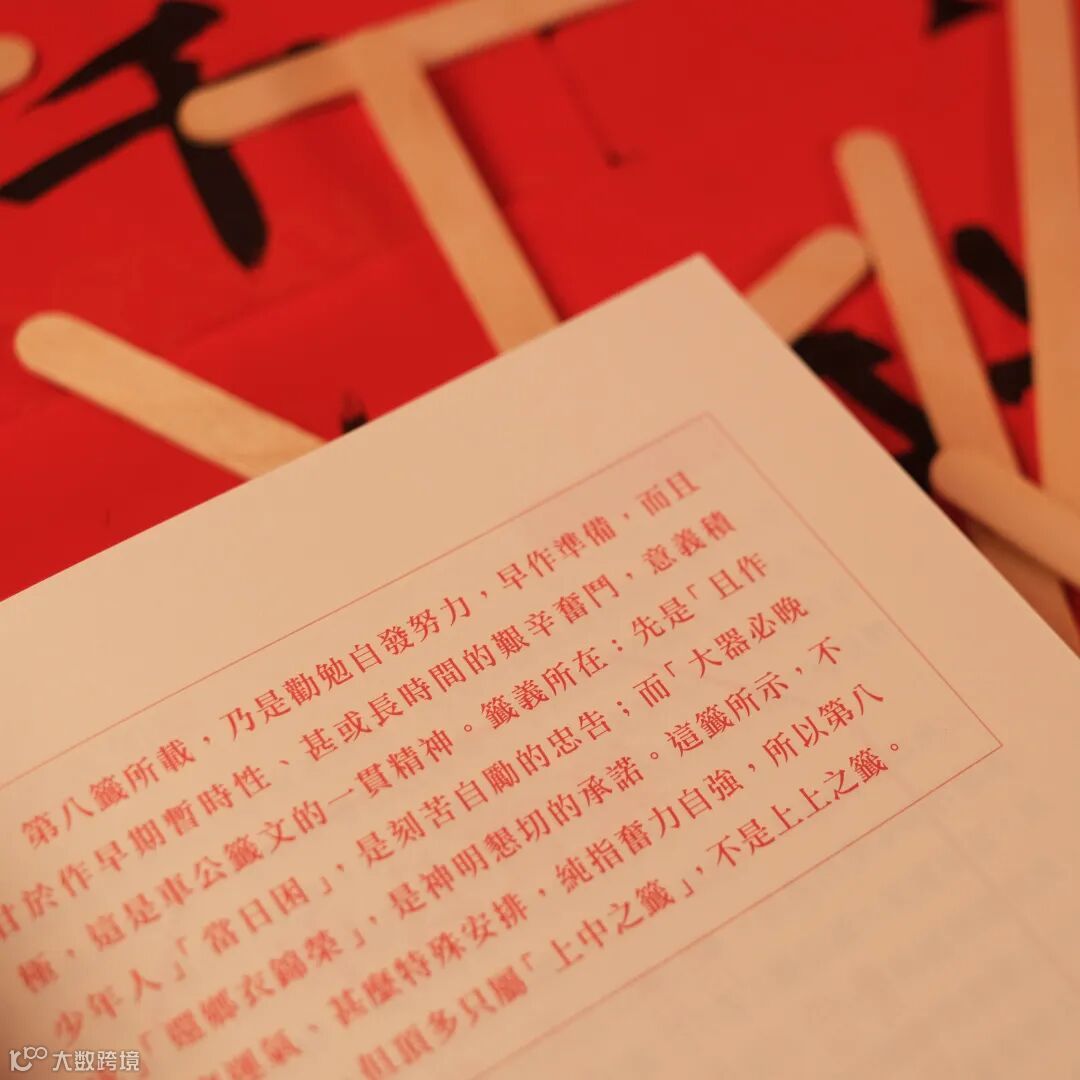 千
第八籤所載，乃是勸勉自發努力，早作準備，而且
甘於作早期暫時性、甚或長時間的艱辛奮鬥，意義積
極，這是車公籤文的一貫精神。籤義所在：先是「且作
少年人」「當日困」，是刻苦自勵的忠告；而「大器必晚
」「還鄉衣錦榮」，是神明懇切的承諾。這籤所示，不
運氣、甚麼特殊安排，純指奮力自強，所以第八
但頂多只屬「上中之籤」，不是上上之籤。
大数跨境